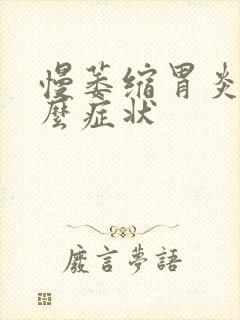 慢萎缩胃炎
麼症状
廢言夢語